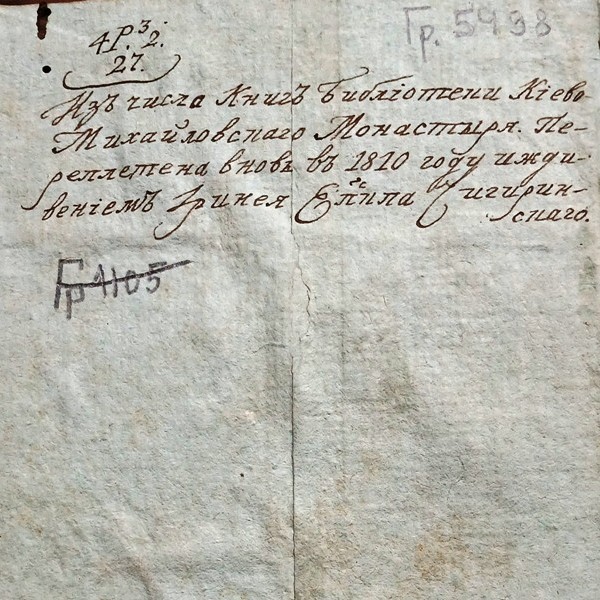 Гр. 5498
4Р.³2.
27.
Изъ числа Книгъ Библіотеки Кіево-
Михайловскаго Монастыря. Пе-
реплетена вновь въ 1810 году ижди-
веніемъ Іринея Епⷭ҇кпа Чигирин-
скаго.
Гр 1105